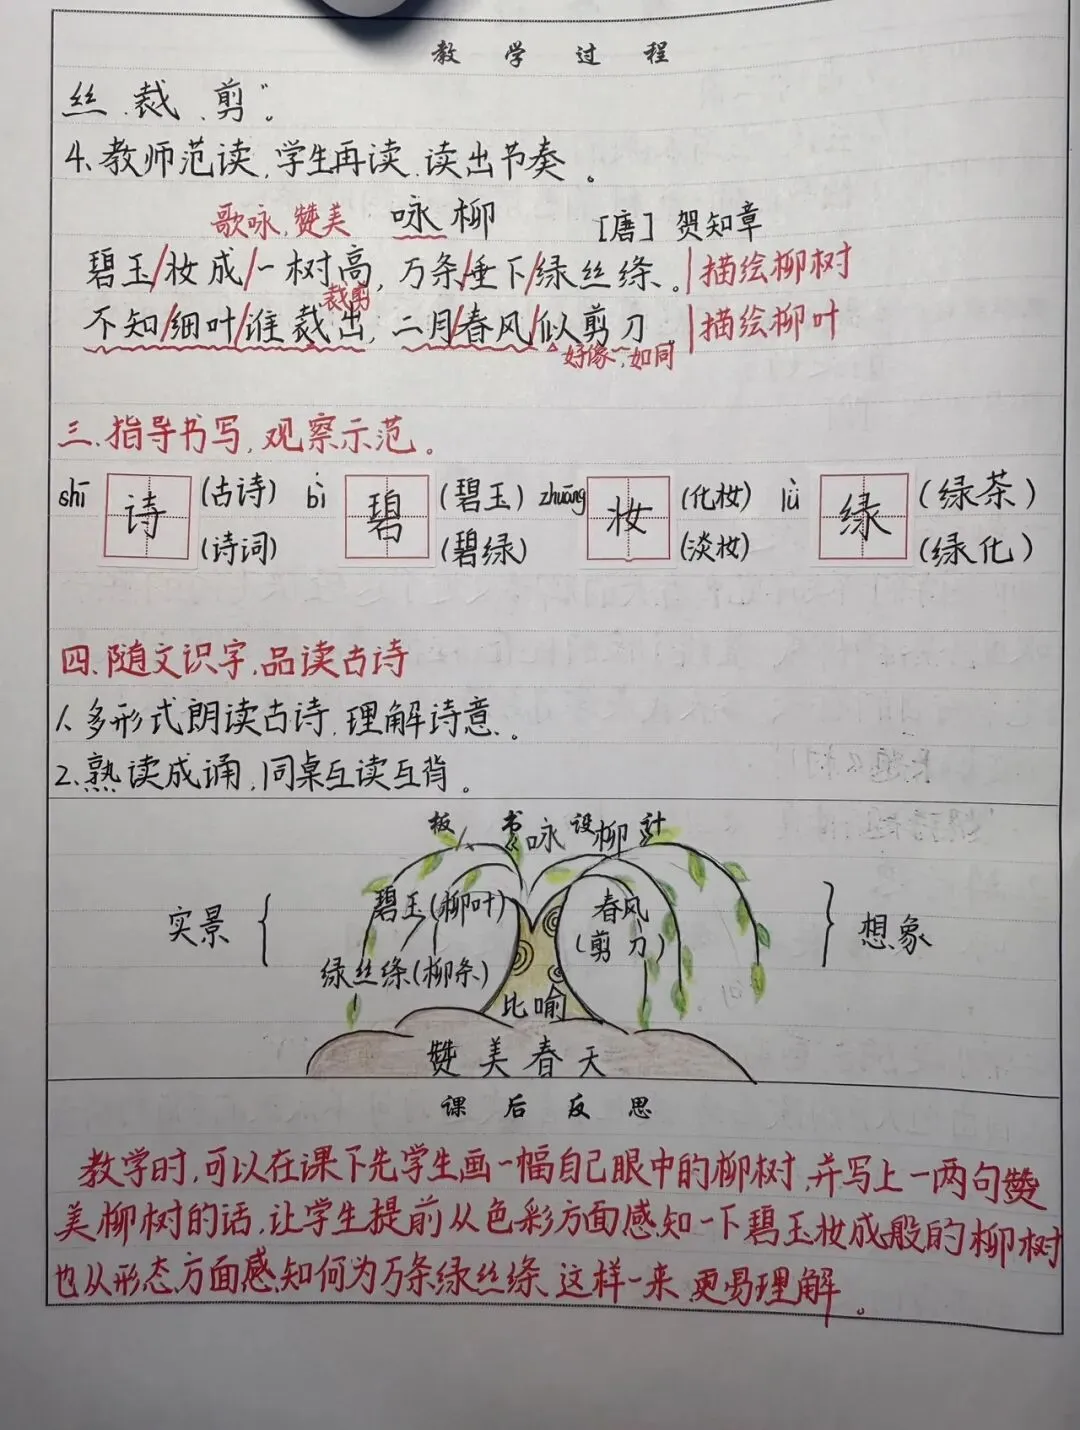 教 学 过 程
丝、裁、剪”。
4、教师范读,学生再读,读出节奏。
歌咏,赞美 咏柳 [唐] 贺知章
碧玉/妆成/一树高,万条/垂下/绿丝绦。|描绘柳树
裁剪
不知/细叶/谁裁出,二月/春风/似剪刀。|描绘柳叶
好像,如同
三、指导书写,观察示范。
shī 诗 (古诗) (诗词)
bì 碧 (碧玉) (碧绿)
zhuāng 妆 (化妆) (淡妆)
lǜ 绿 (绿茶) (绿化)
四、随文识字,品读古诗
1、多形式朗读古诗,理解诗意。
2、熟读成诵,同桌互读互背。
板 书 设 计
咏柳
实景 { 碧玉(柳叶)
绿丝绦(柳条)
春风
(剪刀) } 想象
比喻
赞美春天
课 后 反 思
教学时,可以在课下先学生画一幅自己眼中的柳树,并写上一两句赞
美柳树的话,让学生提前从色彩方面感知一下碧玉妆成般的柳树
也从形态方面感知何为万条绿丝绦,这样一来,更易理解。